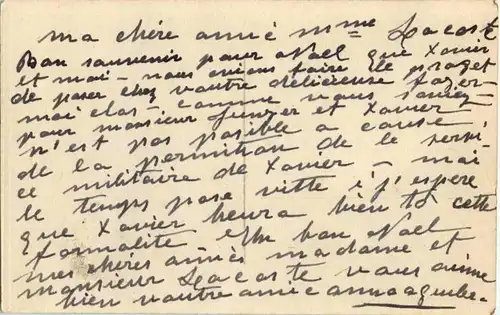 ma chère amie mme Lacoste
Bon souvenir pour Noel que Xavier
et moi - nous avions faire le projet
de paser chez vautre délicieuse
mai elas - comme vous saviez
pour monsieur et Xavier
n'est pas posible a cause
de la permition de le servi-
ce militaire de Xavier - mai
le temps pase vitte j'espère
que Xavier heura bien to cette
formalité Un bon Noel
mes chères amiès madame et
monsieur Lacoste vous aime
bien vautre amie